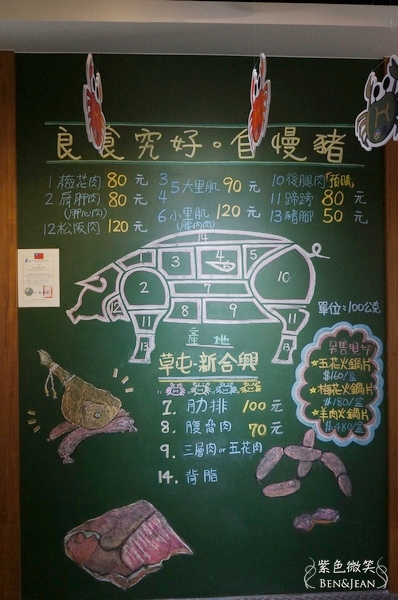 良食究好。自慢豬
1 梅花肉 80 元
2 肩胛肉 80 元
(胛心肉)
12 松阪肉 120 元
3
4
5 大里肌 90 元
6 小里肌 120 元
(腰內肉)
10 後腿肉「預購」
11 蹄膀 80 元
13 豬腳 50 元
單位:100公克
14
1
3
4
5
6
2
7
8
9
10
12
11
11
13
13
產地
草屯-新合興
7. 肋排 100 元
8. 腹脅肉 70 元
9. 三層肉or五花肉
14. 背脂
另售現切
★五花火鍋片
$160/盒
★梅花火鍋片
$180/盒
★羊肉火鍋片
$480/盒
紫色微笑
BEN&JEAN